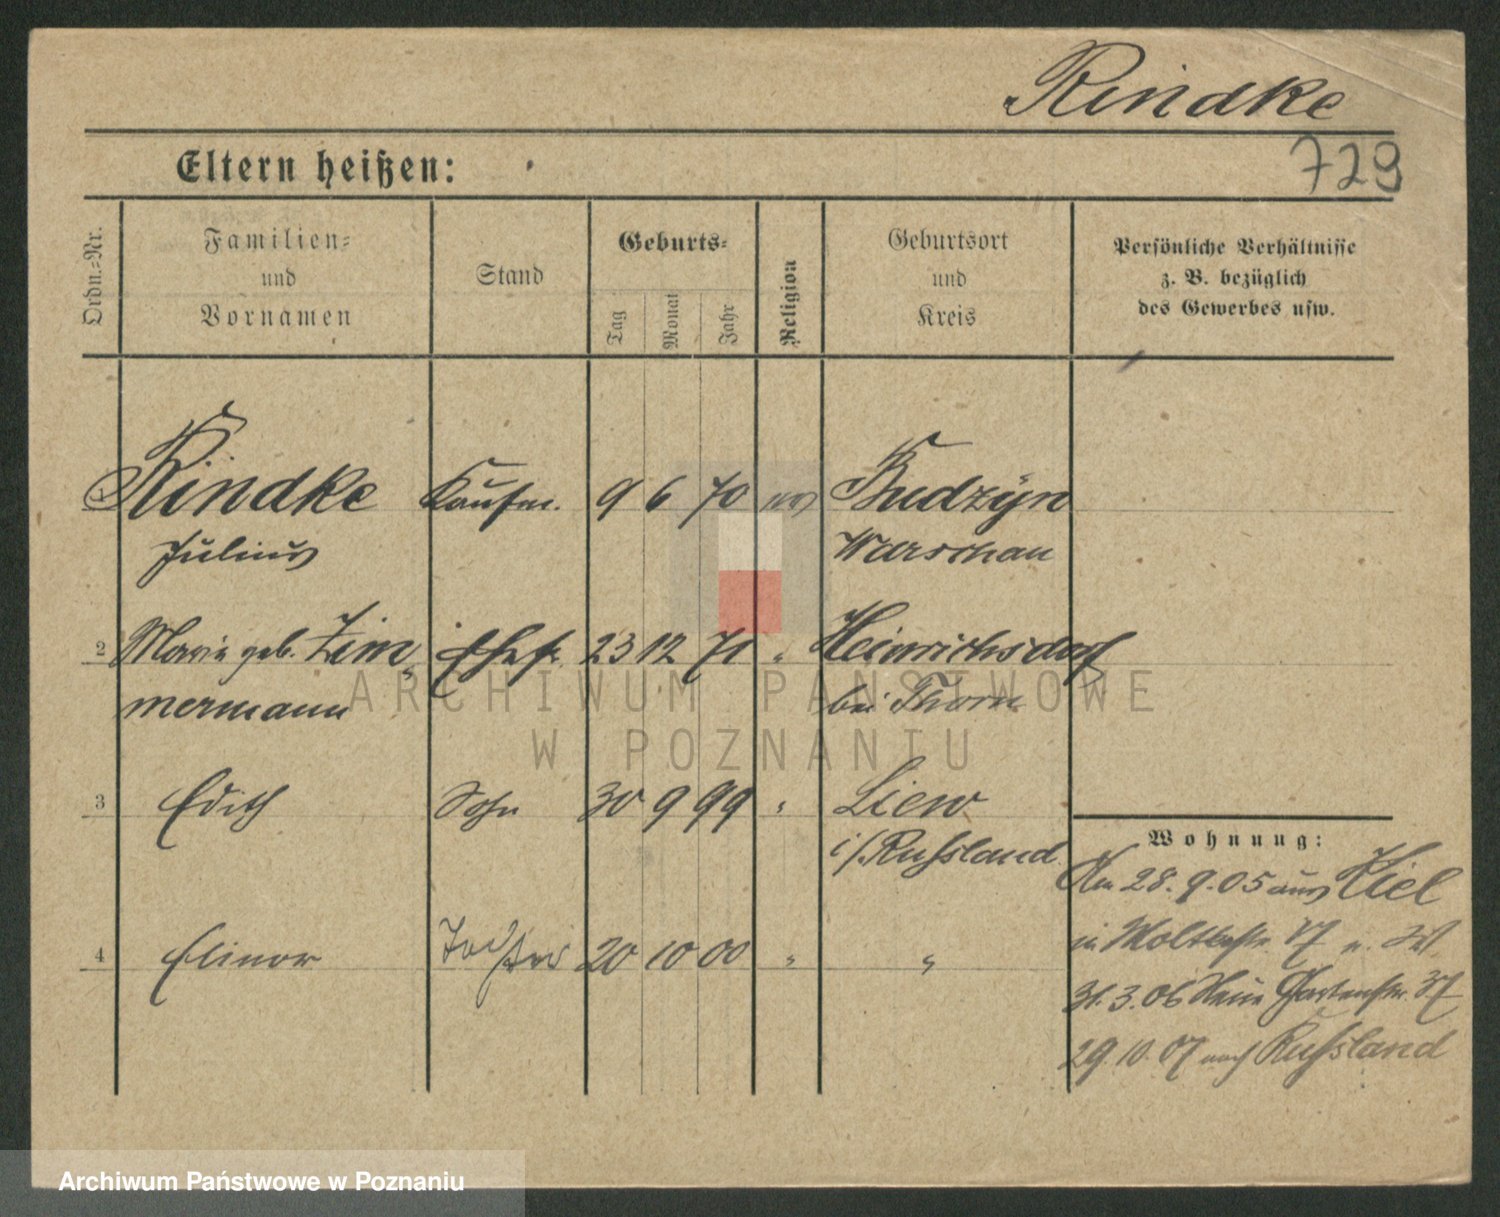 Rindke
729
Eltern heißen:
Ordn.-Nr.
Familien-
und
Vornamen
Stand
Geburts-
Tag
Monat
Jahr
Religion
Geburtsort
und
Kreis
Persönliche Verhältnisse
z. B. bezüglich
des Gewerbes usw.
1 Rindke Kaufm. 9 6 70 ev Budzyn
Julius Warschau
2 Marie geb. Zim- Ehefr. 23 12 71 " Heinrichsdorf
mermann bei Thorn
3 Edith Sohn 30 9 99 " Liew
i/Russland
4 Elinor Tochter 20 10 00 " "
Wohnung:
Am 28.9.05 aus Kiel
in Moltkestr. 17 u.
31.3.06 Neue Gartenstr. 37
29.10.07 nach Russland
ARCHIWUM PAŃSTWOWE
W POZNANIU
Archiwum Państwowe w Poznaniu